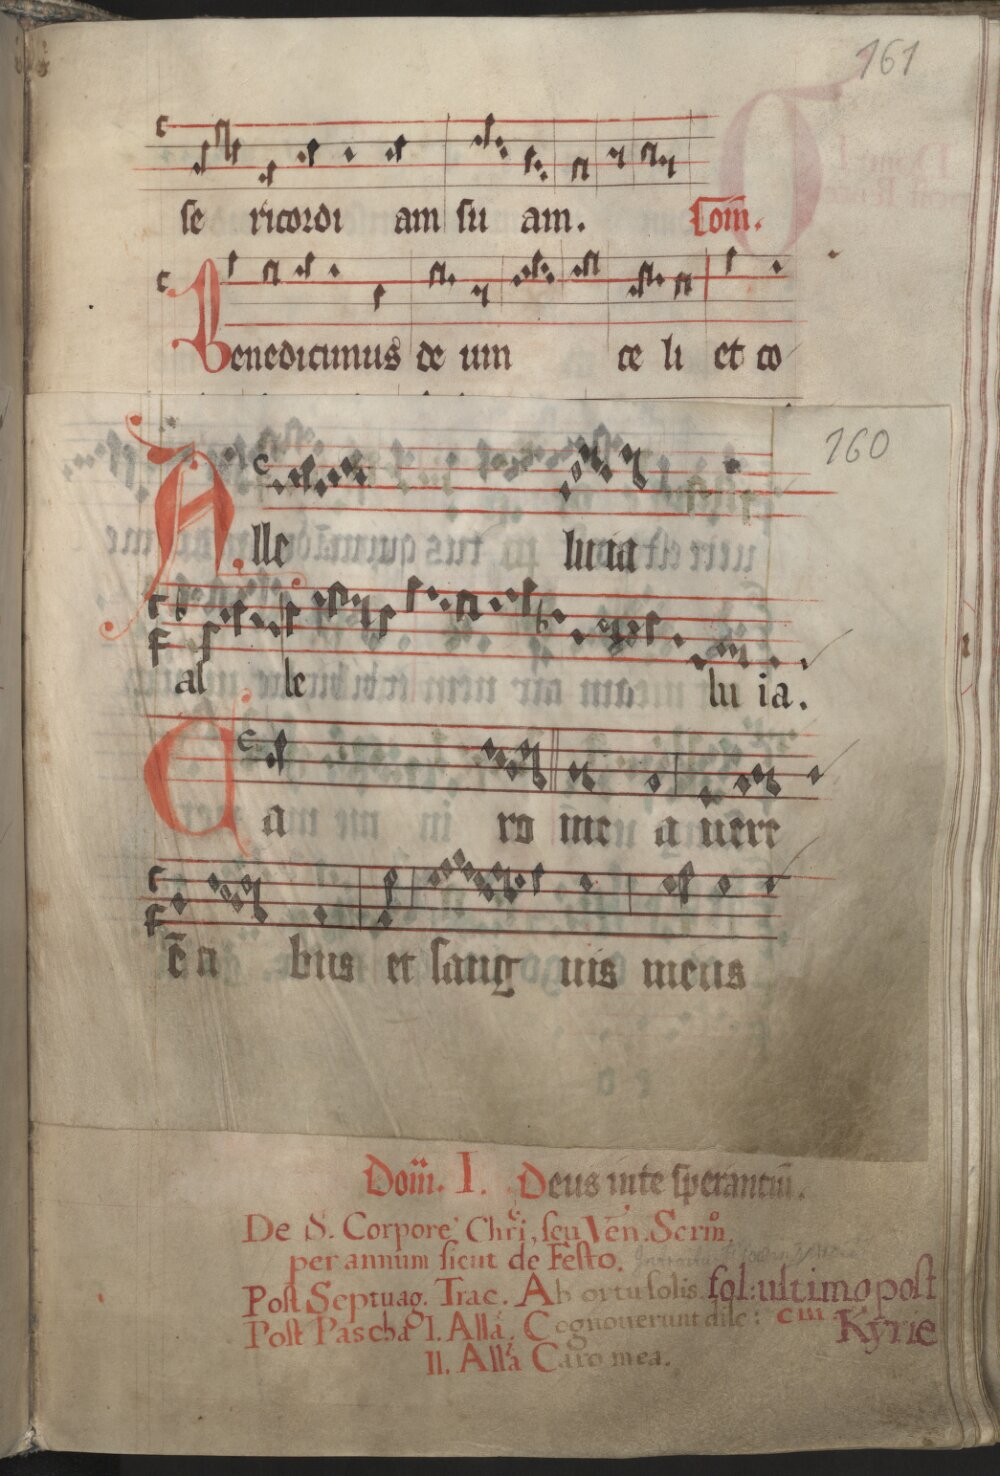 161
se ricordi am su am. Com̄.
Benedicimus de um ce li et co
160
Alle luia
al le lu ia.
Ca ro me a uere
ē n bus et sang uis meus
Dom̄. I. Deus in te sperantiū.
De S. Corpore Chri, seu Ven. Scrm̊.
per annum sicut de Festo.
Post Septuag. Trac. Ab ortu solis. fol: ultimo post
Post Pascha I. Alla. Cognouerunt disc: cm Kyrie
II. Alla Caro mea.